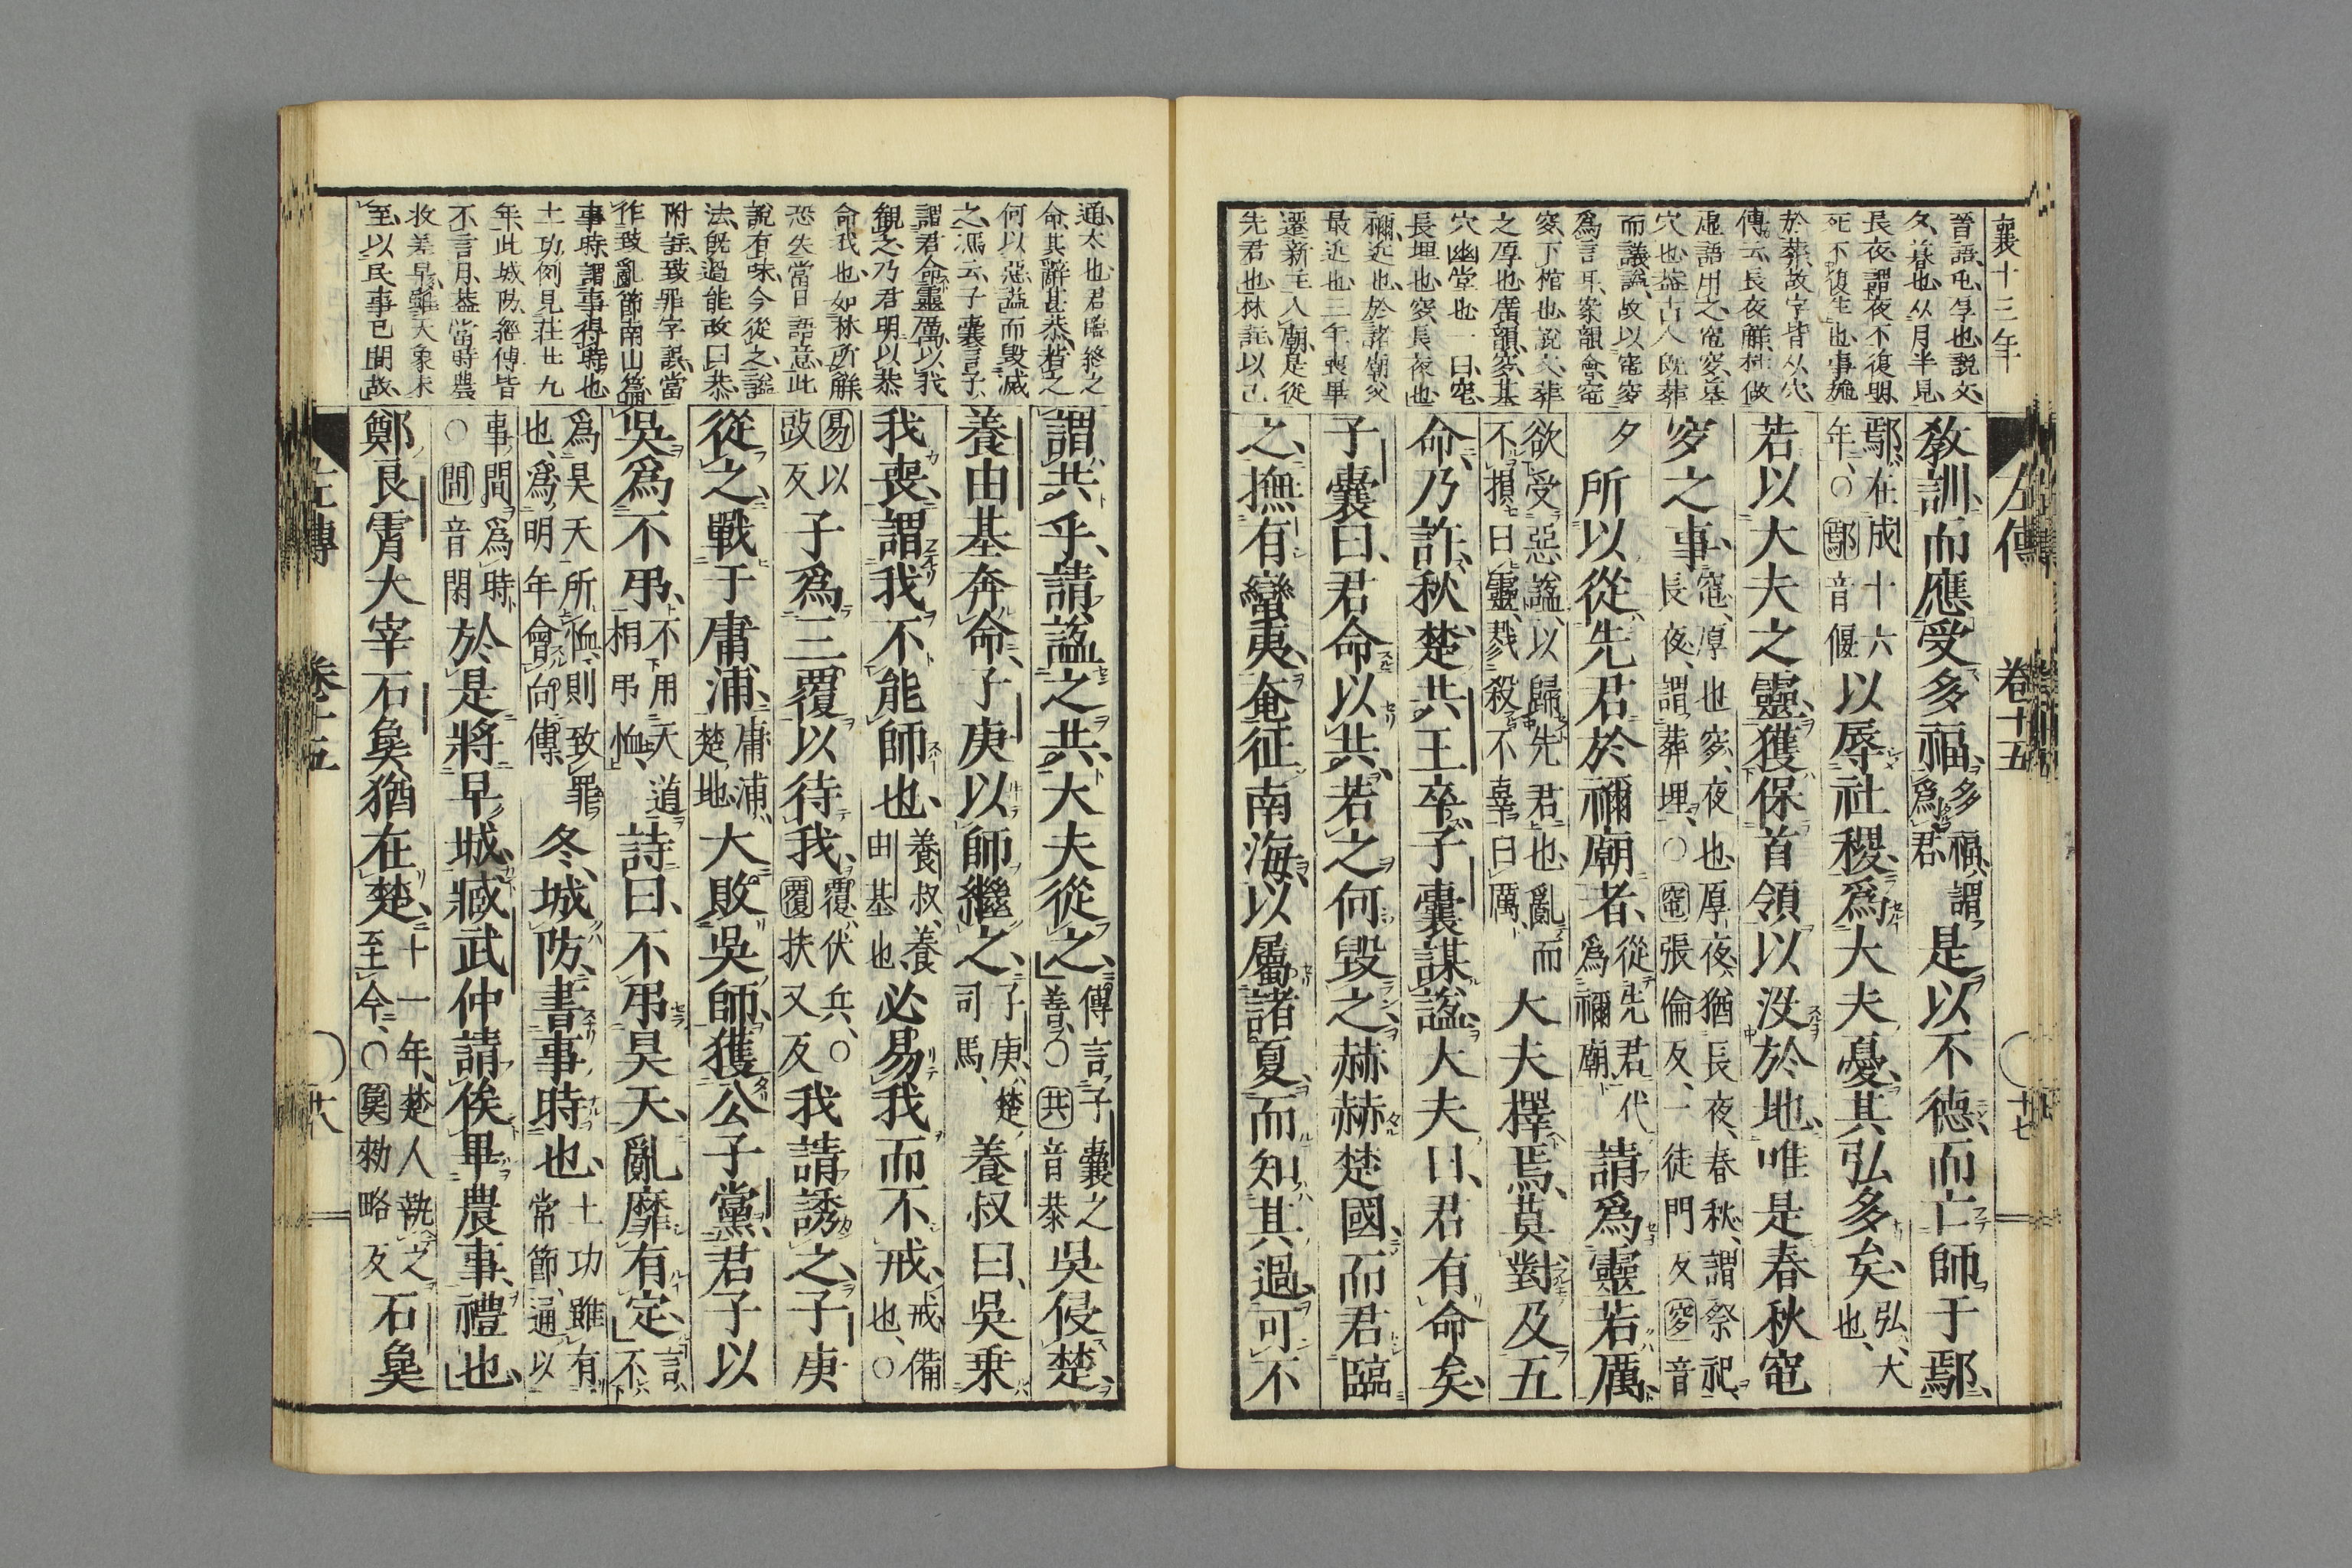 襄十三年
晉語屯厚也說文
夕暮也从月半見
長夜謂夜不復明
死不復生也事施
於葬故字皆从穴
傳云長夜觧杜做
虛語用之窀穸墓
穴也葢古人旣葬
而議諡故以窀穸
爲言耳案韻會窀
穸下棺也說文葬
之厚也廣韻穸墓
穴幽堂也一曰窆
長埋也穸長夜也
禰近也於諸廟父
最近也三年喪畢
遷新主入廟是從
先君也林註以己
左傳 卷十五 十七
教訓而應受多福、多福、謂爲君是以不德而亡師于鄢、
鄢在成十六年、○鄢音偃以辱社稷爲大夫憂其弘多矣、弘、大也、
若以大夫之靈獲保首領以沒於地、唯是春秋窀
穸之事、窀、厚也、穸、夜也、厚夜、猶長夜、春秋、謂祭祀、長夜、謂葬埋、○窀張倫反、一徒門反穸音
夕所以從先君於禰廟者、從先君代爲禰廟、請爲靈若厲、
欲受惡諡、以歸先君也、亂而不損曰靈、戮殺不辜曰厲、大夫擇焉、莫對、及五
命、乃許、秋、楚共王卒、子囊謀諡、大夫曰、君有命矣、
子囊曰、君命以共、若之何毀之、赫赫楚國、而君臨
之、撫有蠻夷、奄征南海、以屬諸夏、而知其過、可不
通太也君臨終之
命其辭甚恭舊之
何以惡諡而毀滅
之馮云子囊言子
謂君命靈厲以我
觀之乃君明以恭
命我也如林所觧
恐失當日語意此
說有味今從之諡
法旣過能改曰恭
附註致罪字誤當
作致亂節南山篇
事時謂事得時也
土功例見莊廿九
年此城防經傳皆
不言月葢當時農
收差早雖天象未
至以民事已間故
謂共乎、請諡之共、大夫從之、傳言子囊之善、○共音恭吳侵楚、
養由基奔命、子庚以師繼之、子庚、楚司馬、養叔曰、吳乗
我喪、謂我不能師也、養叔、養由基也、必易我而不戒、戒、備也、○
易以豉反子爲三覆以待我、覆、伏兵、○覆扶又反我請誘之、子庚
從之、戰于庸浦、庸浦、楚地、大敗吳師、獲公子黨、君子以
吳爲不弔、不用天道相弔恤、詩曰、不弔昊天、亂靡有定、言不
爲昊天所恤、則致罪也、爲明年會向傳、冬、城防、書事時也、土功雖有常節、通以
事閒爲時○閒音閑於是將早城、臧武仲請俟畢農事、禮也、
鄭良霄大宰石㚟猶在楚、十一年、楚人執之至今、○㚟勑略反石㚟
左傳 卷十五 十八